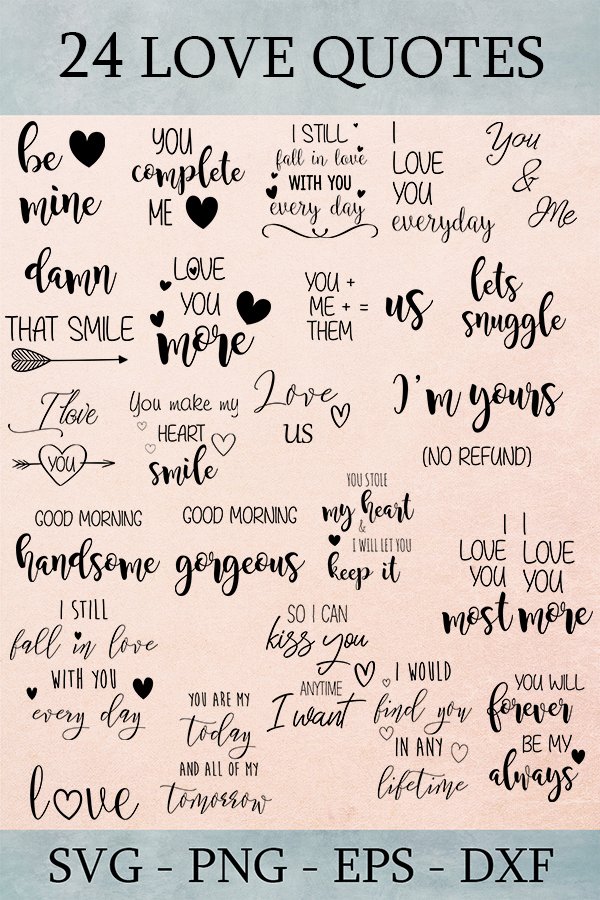 24 LOVE QUOTES
be
mine
YOU
complete
ME
I STILL
fall in love
WITH YOU
every day
I
LOVE
YOU
everyday
You
&
Me
damn
THAT SMILE
LOVE
YOU
more
YOU +
ME + =
THEM
us
lets
snuggle
I love
YOU
You make my
HEART
smile
Love
US
I'm yours
(NO REFUND)
GOOD MORNING
handsome
GOOD MORNING
gorgeous
YOU STOLE
my heart
&
I WILL LET YOU
keep it
I
LOVE
YOU
most
I
LOVE
YOU
more
I STILL
fall in love
WITH YOU
every day
SO I CAN
kiss you
ANYTIME
I want
YOU ARE MY
Today
AND ALL OF MY
tomorrow
I WOULD
find you
IN ANY
lifetime
YOU WILL
forever
BE MY
always
love
SVG - PNG - EPS - DXF